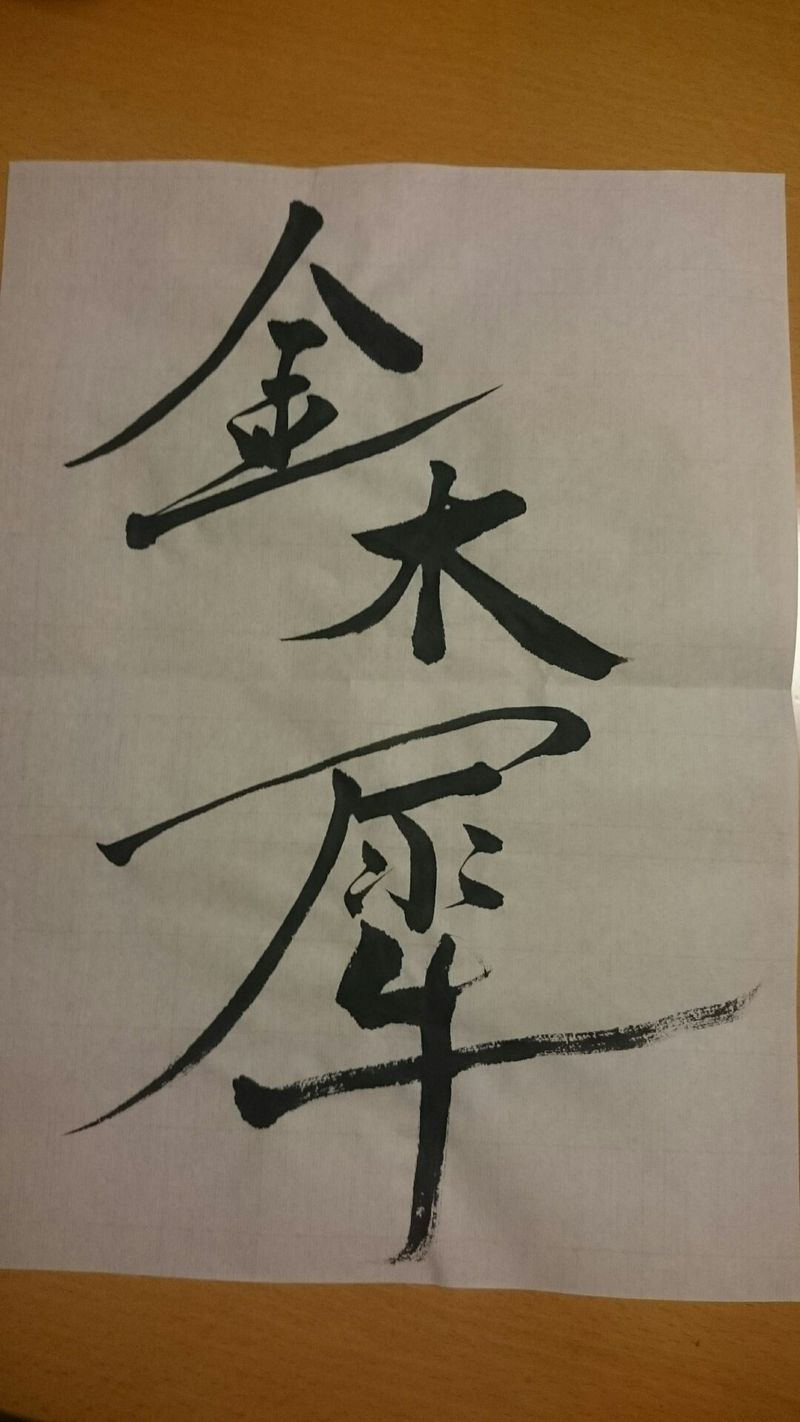 金木犀